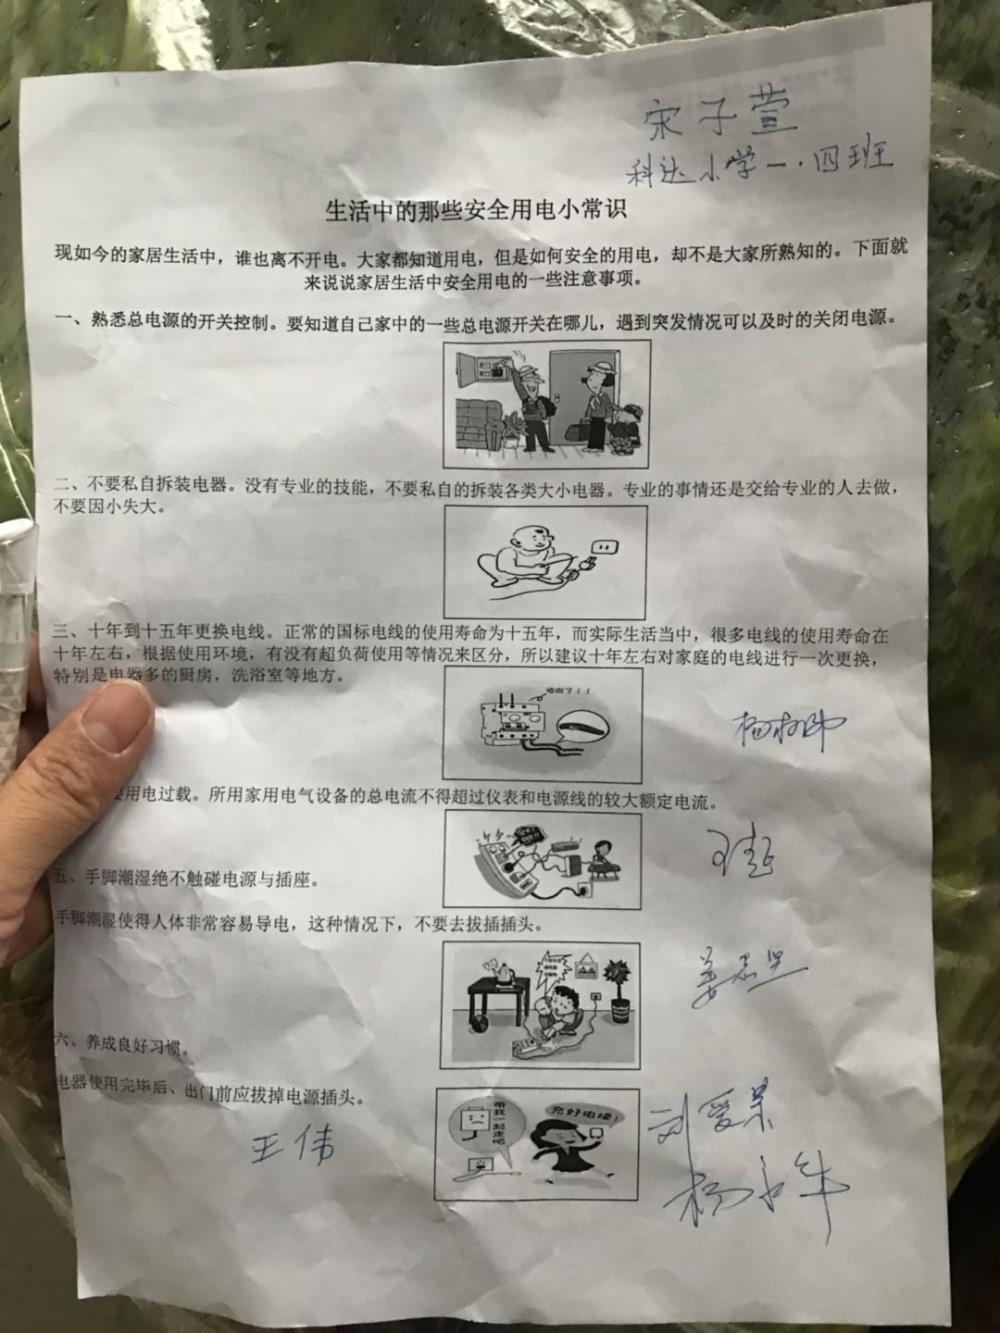 宋子萱
科达小学一.四班
生活中的那些安全用电小常识
现如今的家居生活中，谁也离不开电。大家都知道用电，但是如何安全的用电，却不是大家所熟知的。下面就
来说说家居生活中安全用电的一些注意事项。
一、熟悉总电源的开关控制。要知道自己家中的一些总电源开关在哪儿，遇到突发情况可以及时的关闭电源。
二、不要私自拆装电器。没有专业的技能，不要私自的拆装各类大小电器。专业的事情还是交给专业的人去做，
不要因小失大。
三、十年到十五年更换电线。正常的国标电线的使用寿命为十五年，而实际生活当中，很多电线的使用寿命在
十年左右，根据使用环境，有没有超负荷使用等情况来区分，所以建议十年左右对家庭的电线进行一次更换，
特别是电器多的厨房，洗浴室等地方。
用电过载。所用家用电气设备的总电流不得超过仪表和电源线的较大额定电流。
五、手脚潮湿绝不触碰电源与插座。
手脚潮湿使得人体非常容易导电，这种情况下，不要去拔插插头。
六、养成良好习惯。
电器使用完毕后、出门前应拔掉电源插头。
带我一起走吧
充好电喽！
王伟
刘爱景